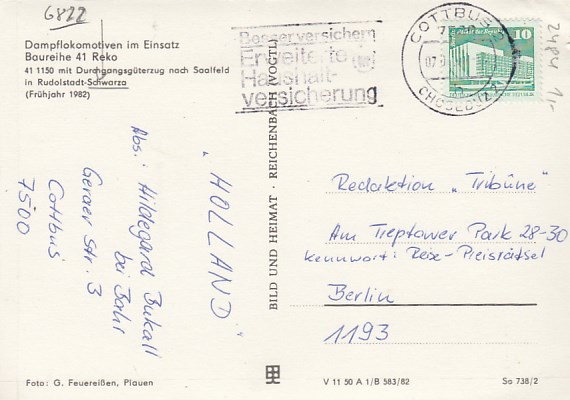 6822
Dampflokomotiven im Einsatz
Baureihe 41 Reko
41 1150 mit Durchgangsgüterzug nach Saalfeld
in Rudolstadt-Schwarza
(Frühjahr 1982)
Besser versichern
Erweiterte
Haushalt-
versicherung
COTTBUS 2
10
24P4
1,-
"HOLLAND"
Abs.: Hildegard Bukall
bei Bahr
Geraer Str. 3
Cottbus
7500
BILD UND HEIMAT · REICHENBACH (VOGTL)
Redaktion „Tribüne"
Am Treptower Park 28-30
Kennwort: Reise-Preisrätsel
Berlin
1193
Foto: G. Feuereißen, Plauen
V 11 50 A 1/B 583/82
So 738/2